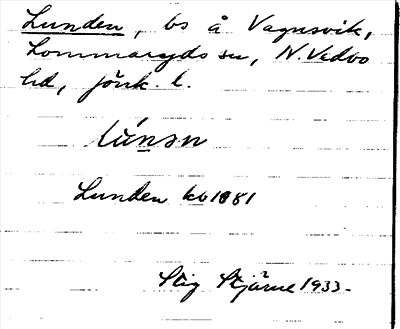 Lunden, bs å Vagnsvik,
Lommaryds sn, N. Vedbo
hd, Jönk. l.
lúnsn
Lunden kb 1881
Stig Stjärne 1933.